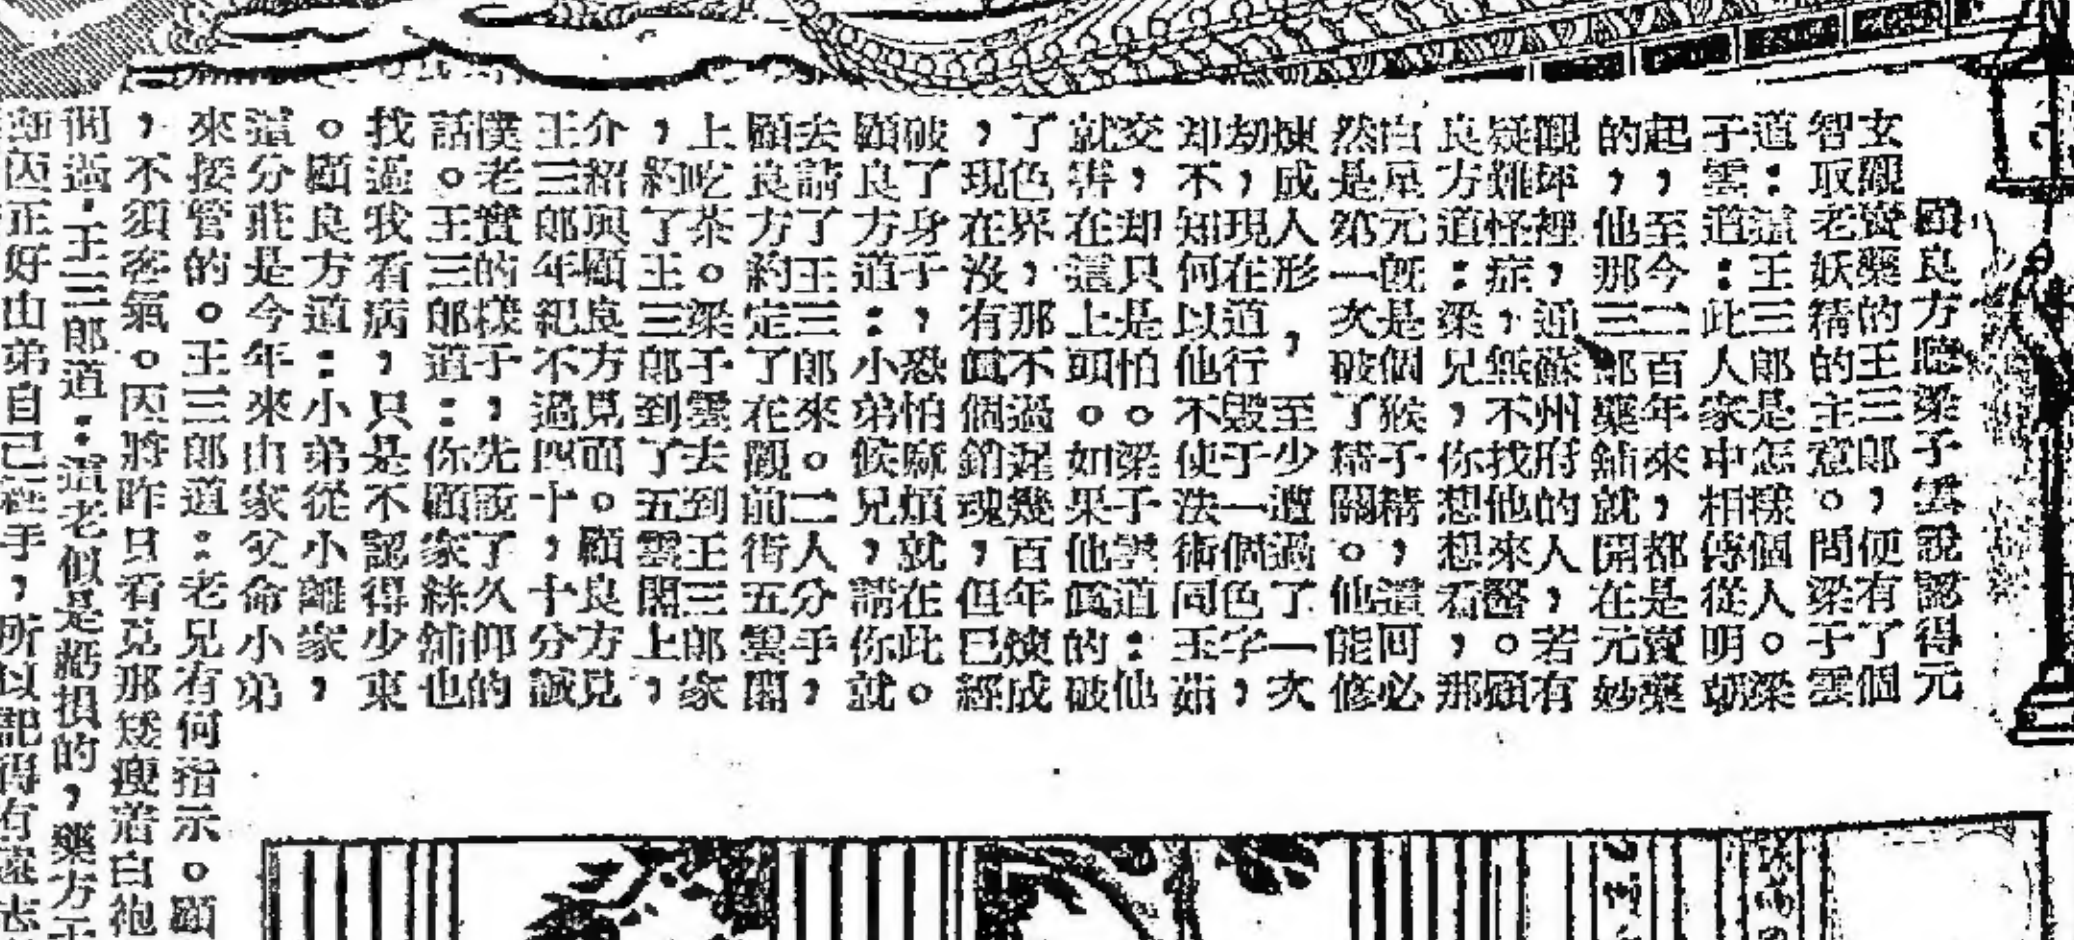 顧良方聽梁子雲說認得元
玄觀賣藥的王三郎,便有了個
智取老妖精的主意。問梁子雲
道:這王三郎是怎樣個人。梁
子雲道:此人家中相傳從明朝
起,至今二百年來,都是賣藥
的,他那三郎藥鋪就開在元妙
觀坪裡,通蘇州府的人,若有
疑難怪症,無不找他來醫。顧
良方道:梁兄,你想想看,那
白元旣是個猴子精,這回必
然是第一次破了精關。他能修
煉成人形,至少遭過了一次
劫,現在道行毀于一個色字,
却不知何以他不使法術同玉茹
交,却只是怕。梁子雲道:他
就在這上頭。如果他眞的破
了色界,那不過遲幾百年煉成
,現在沒有眞個銷魂,但已經
破了身子,恐怕麻煩就在此。
顧良方道:小弟候兄,請你就
去請了王三郎來。二人分手,
顧良方約定了在觀前街五雲閣
上吃茶。梁子雲去到王三郎家
,約了王三郎到了五雲閣上,
介紹與顧良方見面。顧良方見
王三郎年紀不過四十,十分誠
僕老實的樣子,先說了久仰的
話。王三郎道:你顧家絲舖也
找過我看病,只是不認得少東
。顧良方道:小弟從小離家,
這分莊是今年來由家父命小弟
來接管的。王三郎道:老兄有何指示。顧
,不須客氣。因將昨日看見那矮瘦着白袍
問過.王三郎道:這老似是虧損的,藥方
因正好由弟自己經手,所以記得有遠志